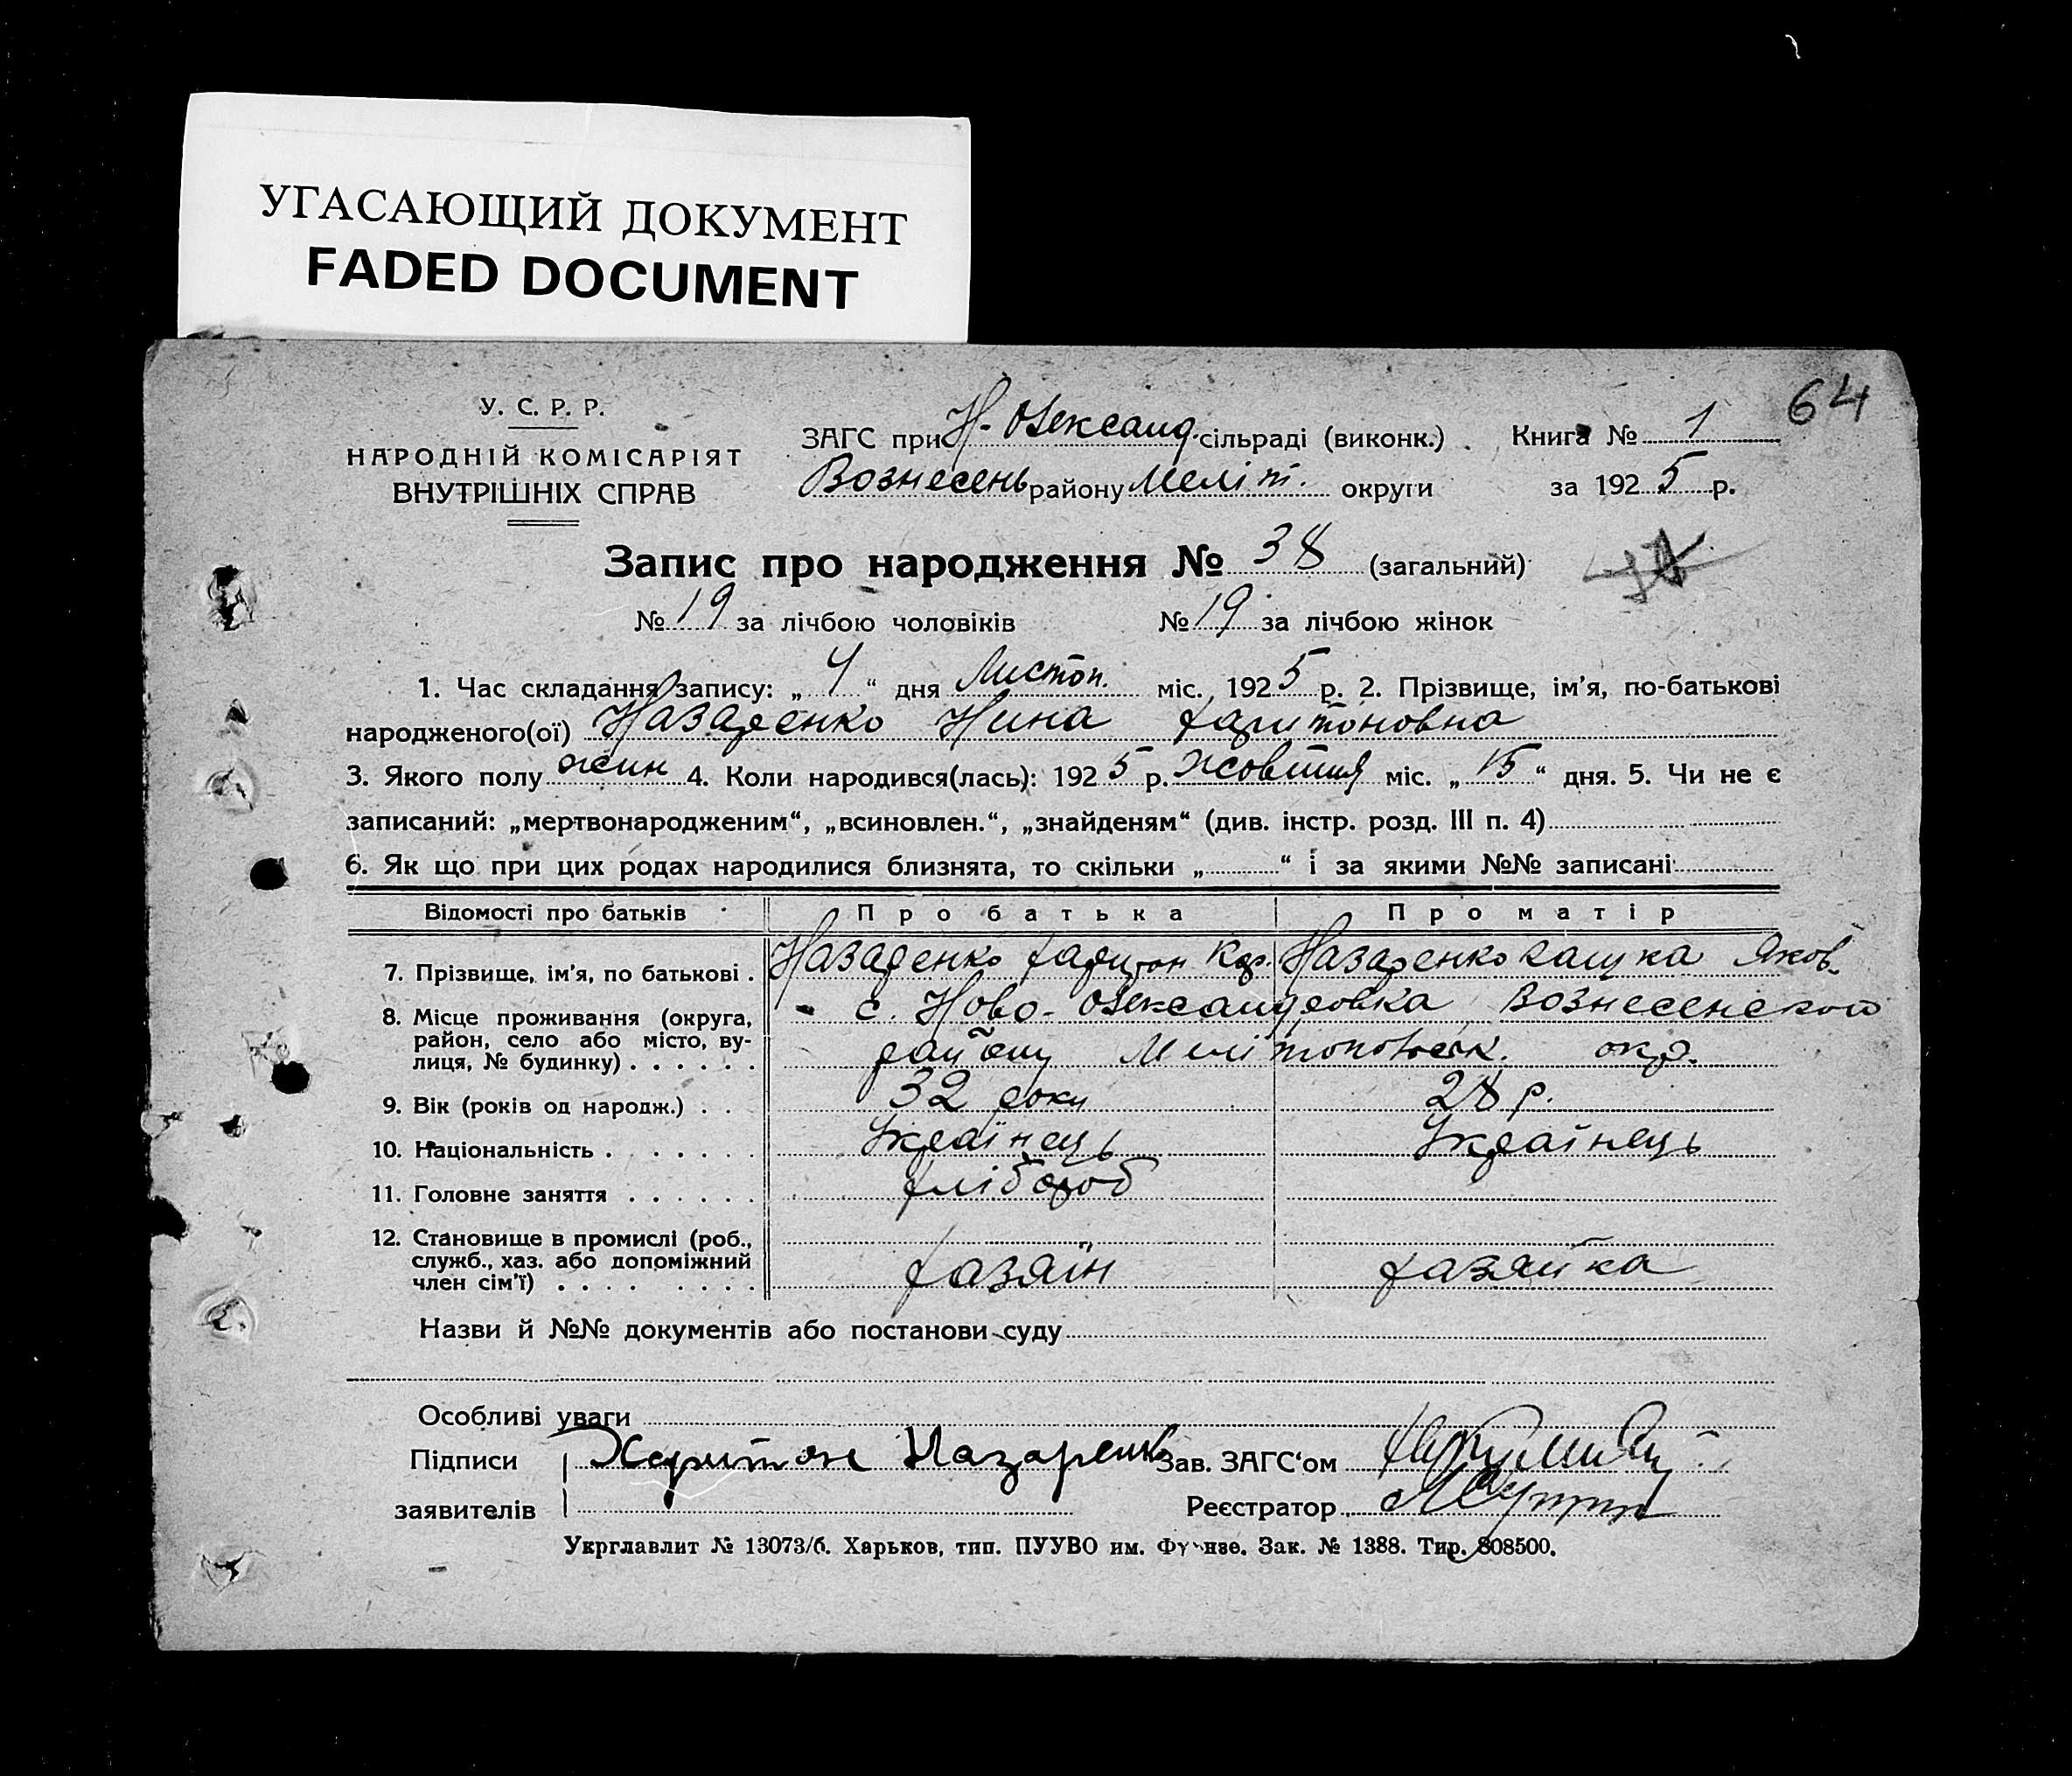 УГАСАЮЩИЙ ДОКУМЕНТ
FADED DOCUMENT
64
У. С. Р. Р.
НАРОДНІЙ КОМІСАРІЯТ
ВНУТРІШНІХ СПРАВ
ЗАГС при Н-Олександ. сільраді (виконк.) Книга № 1
Вознесень району Меліт. округи за 1925 р.
Запис про народження № 38 (загальний)
№ 19 за лічбою чоловіків № 19 за лічбою жінок
1. Час складання запису: „4“ дня Листоп. міс. 1925 р. 2. Прізвище, ім'я, по-батькові
народженого(ої) Назаренко Нина Харитоновна
3. Якого полу жин 4. Коли народився(лась): 1925 р. Жовтня міс. „15“ дня. 5. Чи не є
записаний: „мертвонародженим“, „всиновлен.“, „знайденям“ (див. інстр. розд. III п. 4)
6. Як що при цих родах народилися близнята, то скільки „ “ і за якими №№ записані
Відомості про батьків Про батька Про матір
7. Прізвище, ім'я, по батькові. Назаренко Харитон Назаренко Яков.
8. Місце проживання (округа, район, село або місто, ву-
лиця, № будинку) с. Ново-Олександровка Вознесенской
району Мелітопольск. окр.
9. Вік (років од народж.) 32 роки 28 р.
10. Національність Украінець Украінець
11. Головне заняття хлібороб
12. Становище в промислі (роб.,
служб., хаз. або допоміжний
член сім'ї) хазяін хазяйка
Назви й №№ документів або постанови суду
Особливі уваги
Підписи Харитон Назаренко Зав. ЗАГС'ом
заявителів Реєстратор
Укрглавлит № 13073/б. Харьков, тип. ПУУВО им. Фрунзе. Зак. № 1388. Тир. 808500.